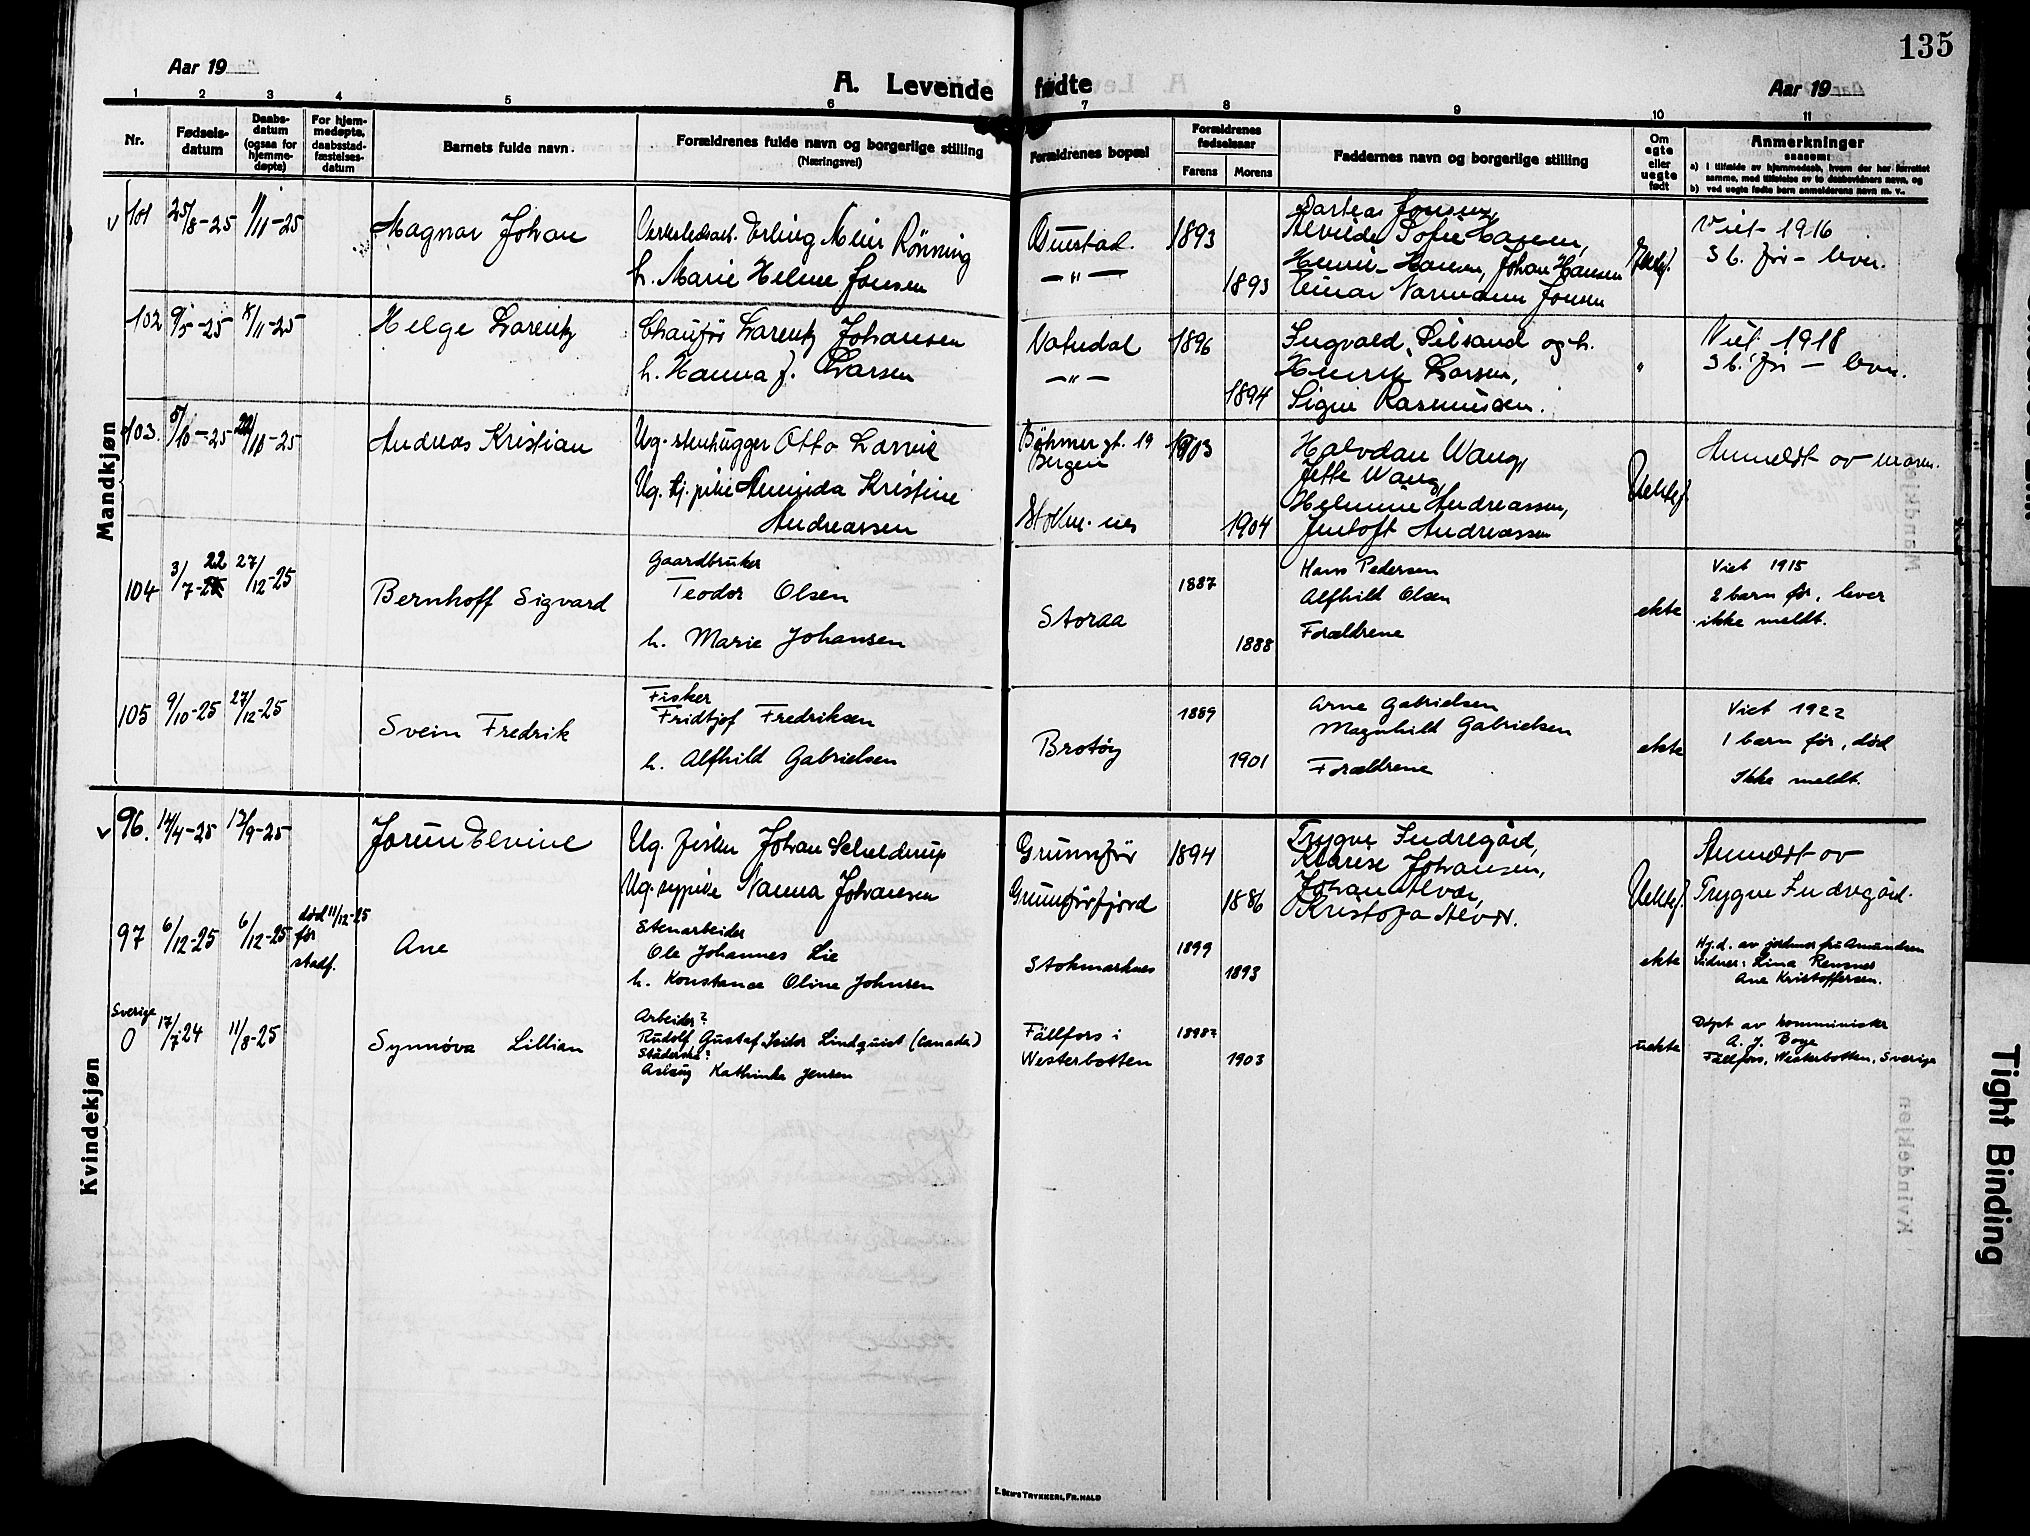 135
Aar 19
A. Levende fødte
Aar 19
1 2 3 4 5 6 7 8 9 10 11
Nr.
Fødsels-
datum
Daabs-
datum
(ogsaa for
hjemme-
døpte)
For hjem-
medøpte,
daabsstad-
fæstelses-
datum
Barnets fulde navn.
Forældrenes fulde navn og borgerlige stilling
(Næringsvei)
Forældrenes bopæl
Forældrenes
fødselsaar
Farens Morens
Faddernes navn og borgerlige stilling
Om
ægte
eller
uegte
født
Anmerkninger
saasom:
a) i tilfælde av hjemmedaab, hvem der har forrettet
samme, med tilføielse av to daabsvidners navn, og
b) ved uegte fødte barn anmelderens navn m. v.
Mandkjøn
101 25/8-25 1/11-25
Magnar Johan
Erling Meier Rönning
h. Marie Helene Jonsen
— " —
1893
1893
Jonsen,
Sofie Hansen,
Henrik Hansen, Johan Hansen
Einar Normann Jonsen
Viet 1916
3 b. før – lever.
102 9/5-25 8/11-25
Helge Lorentz
Chauför Lorentz Johansen
h. Hanna J. Larsen
Vatndal
— " —
1896
1894
Ingvald og h.
Henrik Larsen,
Signe Rasmussen.
"
Viet 1918
3 b. før – lever.
103. 5/10-25 22/10-25
Andreas Kristian
Ug. stenhugger Otto
Ug. tj. pike Kristine
Andreassen
Böhmer gt. 19
Bergen
Stokm.nes
1903
1904
Halvdan Wang,
Jette Wang,
Helmine Andreassen,
Jentoft Andreassen
Uekte f.
Anmeldt av moren.
104 3/7-22 27/12-25
Bernhoff Sigvard
Gaardbruker
Teodor Olsen
h. Marie Johansen
Storaa
1887
1888
Hans Pedersen
Alfhild Olsen
Forældrene
ekte
Viet 1915
2 barn før, lever
ikke meldt.
105 9/10-25 27/12-25
Svein Fredrik
Fisker
Fridtjof Fredriksen
h. Alfhild Gabrielsen
Brotöy
1889
1901
Arne Gabrielsen
Magnhild Gabrielsen
Forældrene
ekte
Viet 1922
1 barn før, død
Ikke meldt.
Kvindekjøn
96. 14/4-25 13/9-25
Jorun Elvine
Ug. fisker Johan Schelderup
Ug. sypike Nanna Johansen
Grunnför
Grunnförfjord
1894
1886
Trygve Indregård,
Klarise Johansen,
Johan Alvær,
Kristofa Alvær.
Uekte f.
Anmeldt av
Trygve Indregård.
97 6/12-25 6/12-25
død 11/12-25
før
stadf.
Ane
Stenarbeider
Ole Johannes Lie
h. Konstance Oline Johnsen
Stokmarknes
1899
1893
ekte
Hj.d. av jordmor fru Amundsen
Vidner: Lina Rensner
Ane Kristoffersen.
Sverige
0 17/7-24 11/8-25
Synnöva Lillian
Arbeider?
Rudolf Gustaf Isidor Lindquist (Canada)
Studerska?
Aslaug Kathinka Jensen
Fällfors i
Westerbotten
1898?
1903
uekte
Döpt av komminister
A. J. Boye
Fällfors, Westerbotten, Sverige
E. Sem's Trykkeri, Fr.hald
Tight Binding